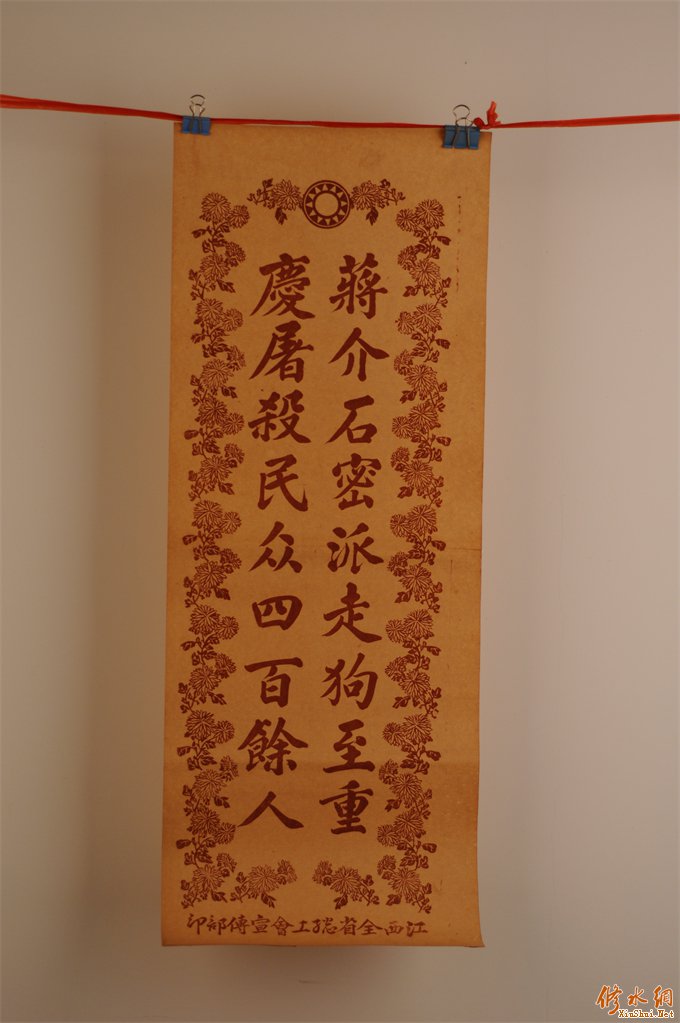 蔣介石密派走狗至重
慶屠殺民众四百餘人
江西全省総工會宣傳部印
修水網
XiuShui.Net